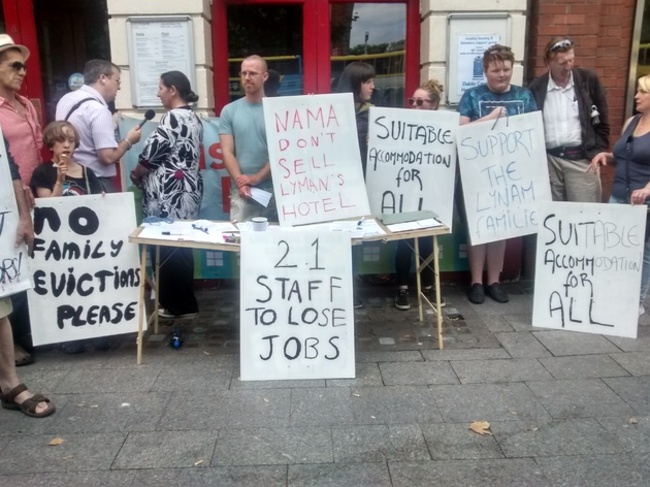 NO
FAMILY
EVICTIONS
PLEASE
NAMA
DON'T
SELL
LYMAN'S
HOTEL
21
STAFF
TO LOSE
JOBS
SUITABLE
ACCOMMODATION
FOR
ALL
SUPPORT
THE
LYNAM
FAMILIE
SUITABLE
ACCOMMODATION
for
ALL